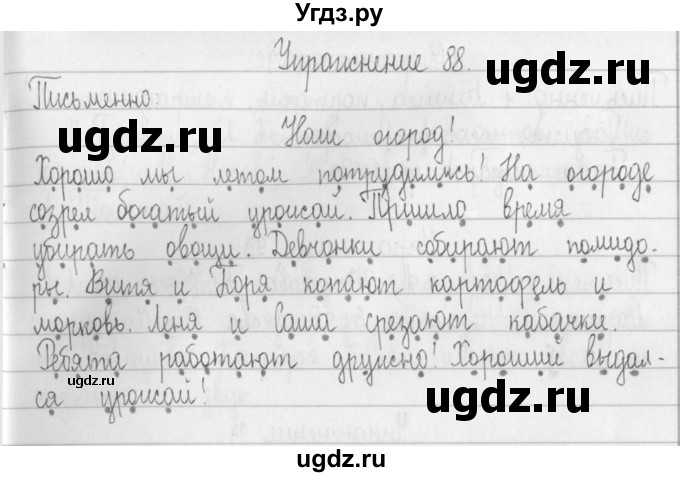 Угдз.ру
Упражнение 88.
ugdz.ru
Письменно:
ugdz.ru
Наш огород!
Хорошо мы летом потрудились! На огороде
созрел богатый урожай. Пришло время
убирать овощи. Девчонки собирают помидо-
ры. Витя и Боря копают картофель и
морковь. Лёня и Саша срезают кабачки.
Ребята работают дружно! Хороший выдал-
ugdz.ru
ся урожай!
ugdz.ru
ugdz.ru